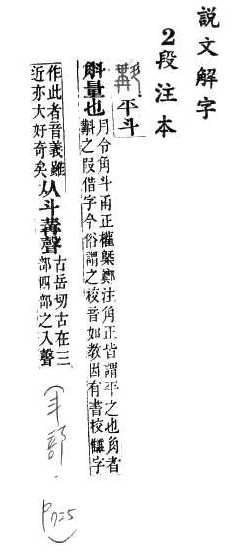 說文解字
2段注本
平斗
斛量也
月令角斗甬正權槩鄭注角正皆謂平之也角者
斠之叚借字今俗謂之校音如教因有書校讎字
作此者音義雖
近亦大好奇矣
从斗冓聲
古岳切古在三
部四部之入聲
(斗部.P725)